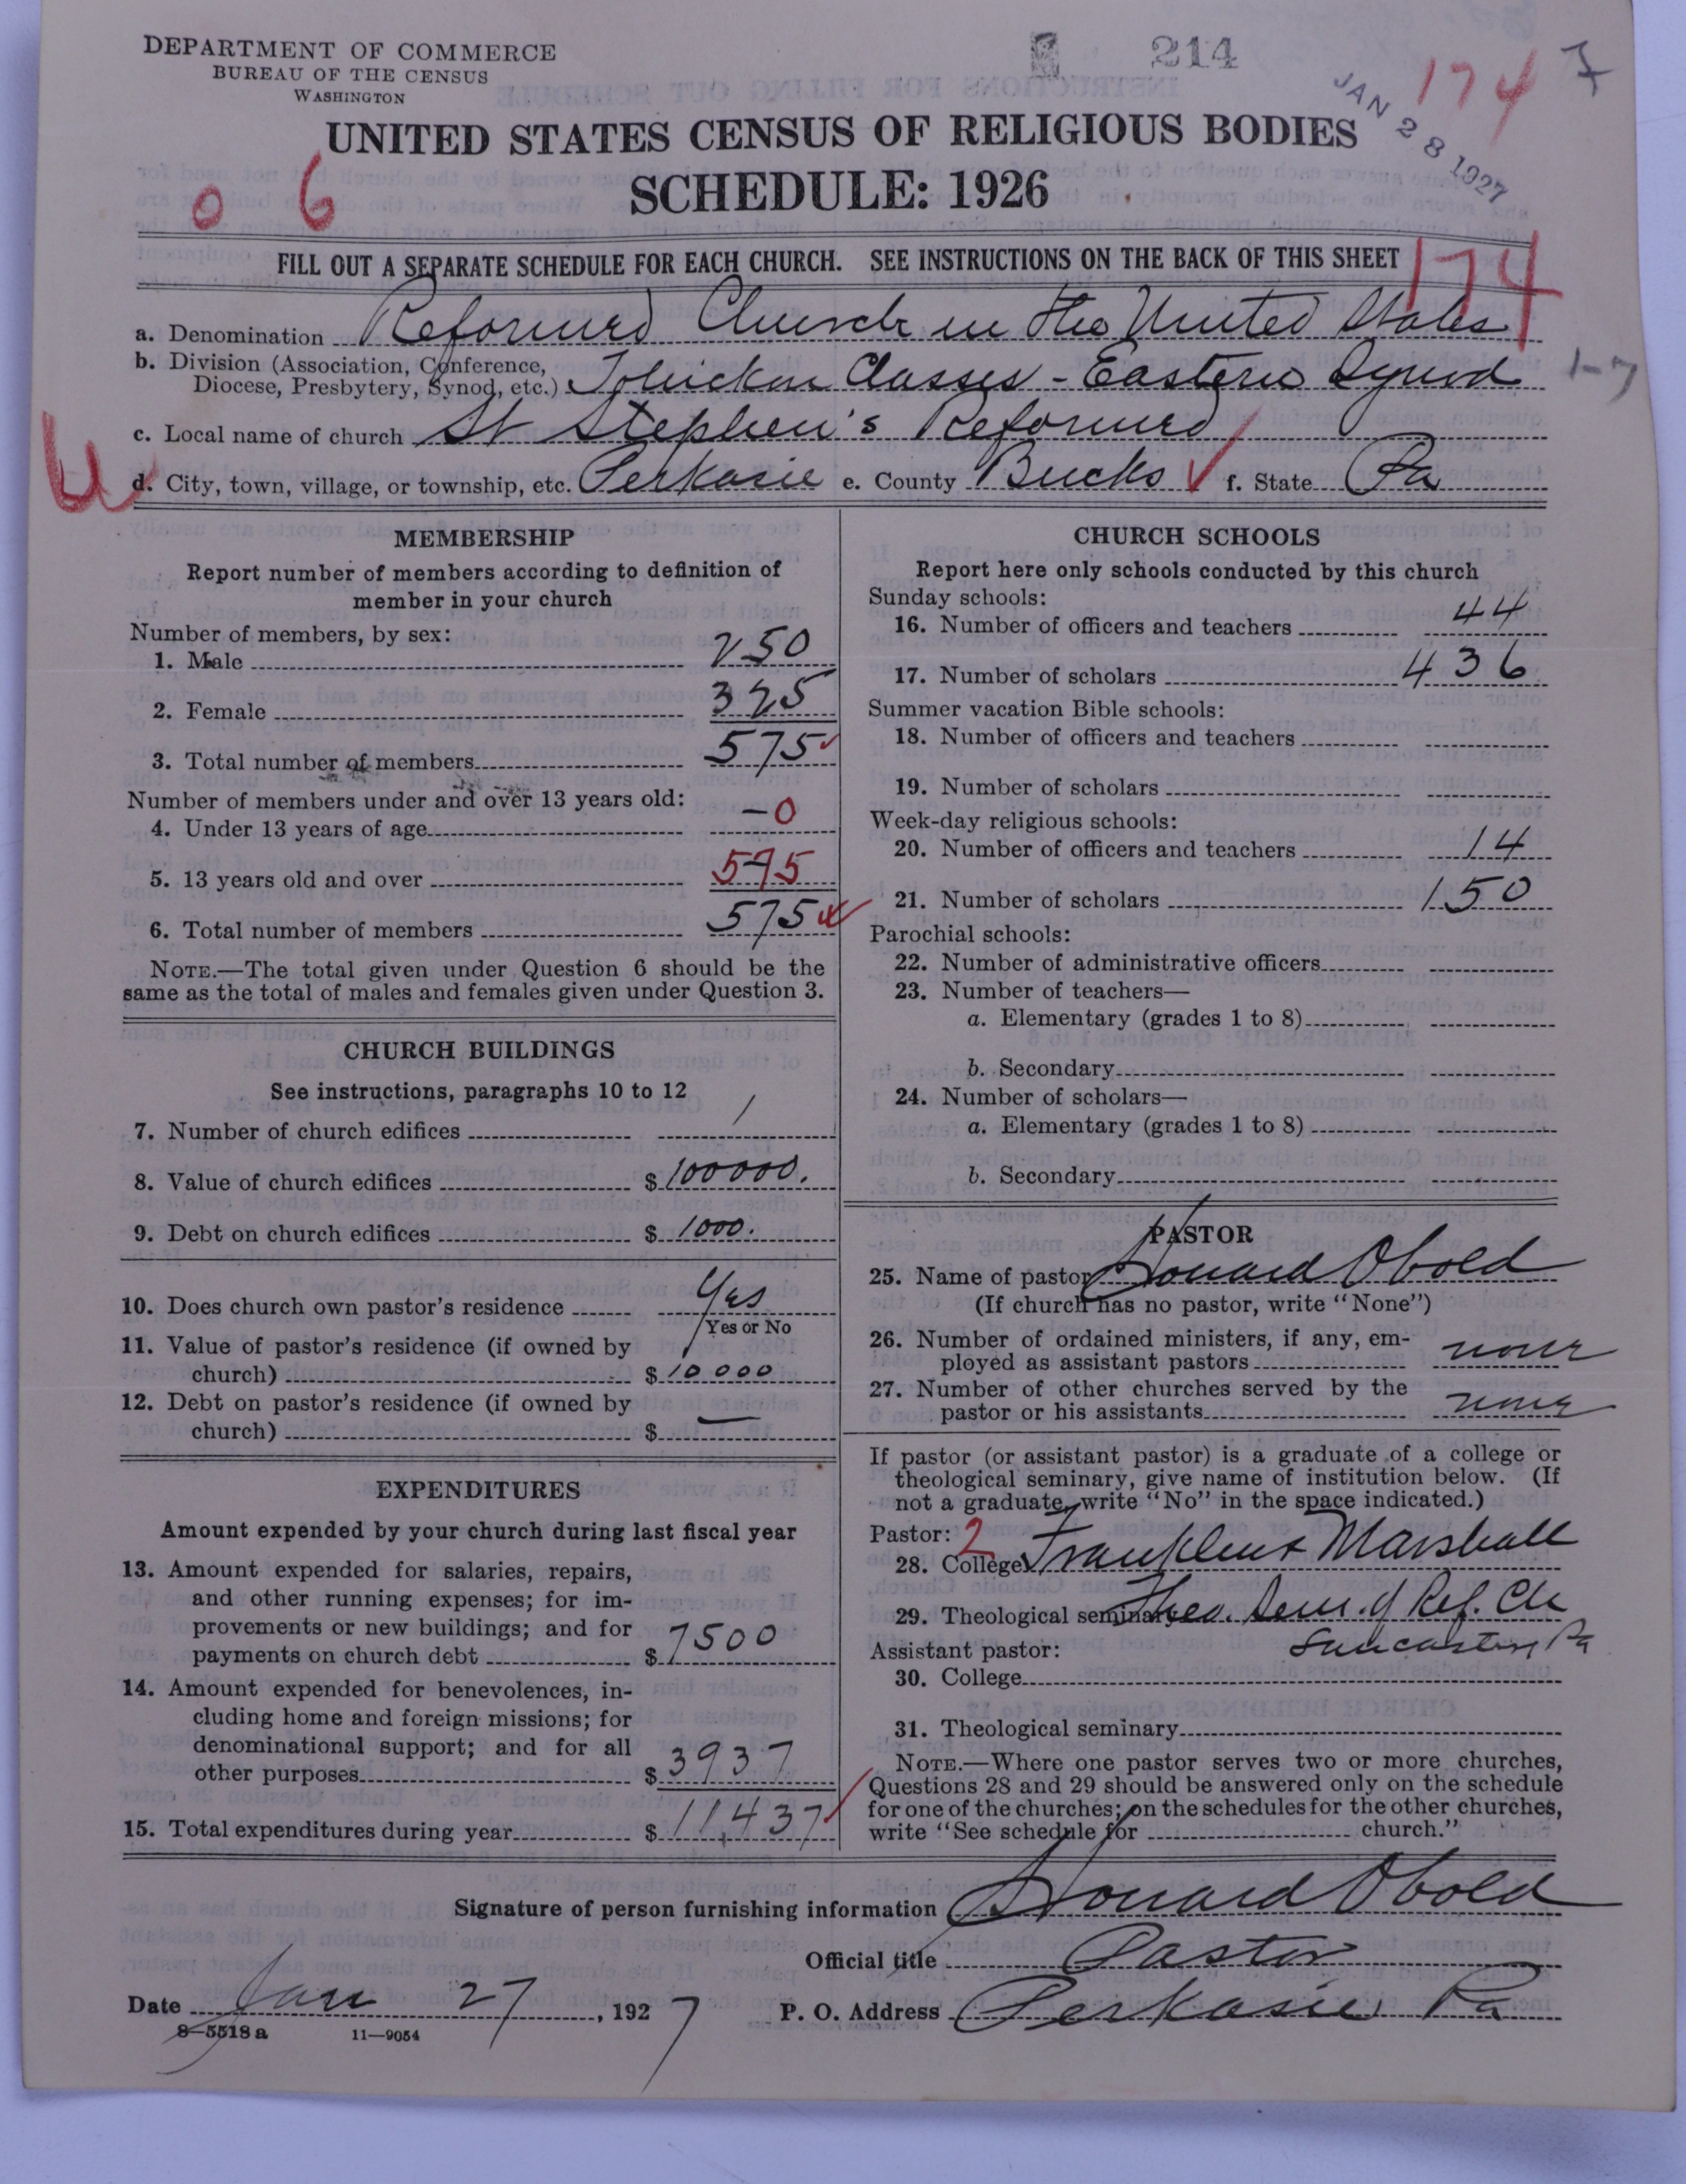 DEPARTMENT OF COMMERCE
BUREAU OF THE CENSUS
WASHINGTON
214
174
7
JAN 28 1927
UNITED STATES CENSUS OF RELIGIOUS BODIES
SCHEDULE: 1926
0 6
FILL OUT A SEPARATE SCHEDULE FOR EACH CHURCH. SEE INSTRUCTIONS ON THE BACK OF THIS SHEET
174
a. Denomination Reformed Church in the United States
b. Division (Association, Conference,
Diocese, Presbytery, Synod, etc.) Tohickon Classes - Eastern Synod
1-7
c. Local name of church St Stephen's Reformed
d. City, town, village, or township, etc. Perkasie e. County Bucks f. State Pa
MEMBERSHIP
Report number of members according to definition of
member in your church
Number of members, by sex:
1. Male 250
2. Female 325
3. Total number of members 575
Number of members under and over 13 years old:
4. Under 13 years of age -0
5. 13 years old and over 575
6. Total number of members 575
NOTE.—The total given under Question 6 should be the
same as the total of males and females given under Question 3.
CHURCH BUILDINGS
See instructions, paragraphs 10 to 12
7. Number of church edifices 1
8. Value of church edifices $ 100000.
9. Debt on church edifices $ 1000.
10. Does church own pastor's residence Yes
Yes or No
11. Value of pastor's residence (if owned by
church) $ 10000
12. Debt on pastor's residence (if owned by
church) $ —
EXPENDITURES
Amount expended by your church during last fiscal year
13. Amount expended for salaries, repairs,
and other running expenses; for im-
provements or new buildings; and for
payments on church debt $ 7500
14. Amount expended for benevolences, in-
cluding home and foreign missions; for
denominational support; and for all
other purposes $ 3937
15. Total expenditures during year $ 11,437
CHURCH SCHOOLS
Report here only schools conducted by this church
Sunday schools:
16. Number of officers and teachers 44
17. Number of scholars 436
Summer vacation Bible schools:
18. Number of officers and teachers
19. Number of scholars
Week-day religious schools:
20. Number of officers and teachers 14
21. Number of scholars 150
Parochial schools:
22. Number of administrative officers
23. Number of teachers—
a. Elementary (grades 1 to 8)
b. Secondary
24. Number of scholars—
a. Elementary (grades 1 to 8)
b. Secondary
PASTOR
25. Name of pastor Howard Obold
(If church has no pastor, write "None")
26. Number of ordained ministers, if any, em-
ployed as assistant pastors none
27. Number of other churches served by the
pastor or his assistants none
If pastor (or assistant pastor) is a graduate of a college or
theological seminary, give name of institution below. (If
not a graduate, write "No" in the space indicated.)
Pastor: 2
28. College Franklin & Marshall
29. Theological seminary Theo. Sem. of Ref. Ch
Lancaster, Pa
Assistant pastor:
30. College
31. Theological seminary
NOTE.—Where one pastor serves two or more churches,
Questions 28 and 29 should be answered only on the schedule
for one of the churches; on the schedules for the other churches,
write "See schedule for church."
Signature of person furnishing information Howard Obold
Official title Pastor
Date Jan 27, 1927 P. O. Address Perkasie Pa
8—5518 a 11—9054